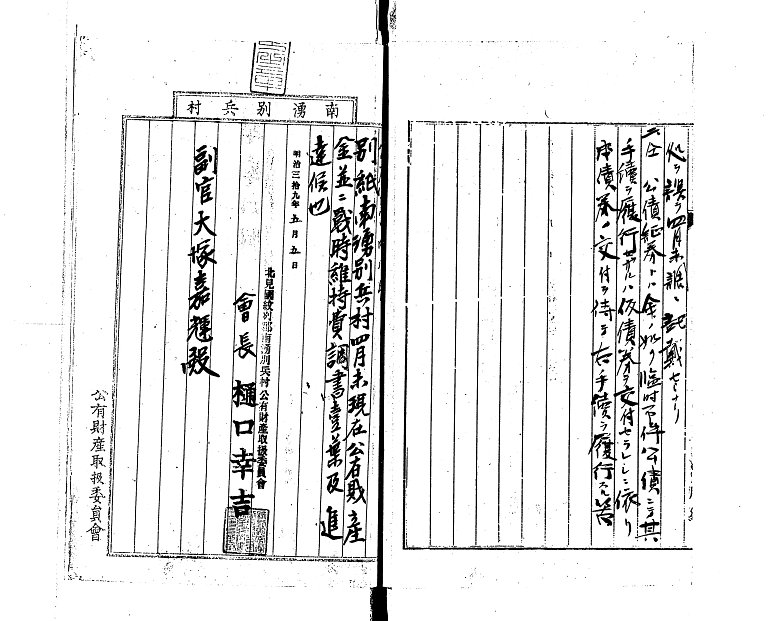 処ヲ誤ヲ四月末調ニ記載セシナリ
公債証券トハ金ノ如ク臨時事件公債ニシテ其
手続ヲ履行セザルハ仮債券ヲ交付セラレシニ依リ
本債券ノ交付ヲ待テ右手続ヲ履行スル筈
南湧別兵村
別紙南湧別兵村四月末現在公有財産
金並ニ戦時維持費調書壹葉及進
達候也
明治三拾九年五月五日
北見國紋別郡南湧別兵村公有財産取扱委員會
會長樋口幸吉
副官大塚嘉輝殿
公有財産取扱委員會